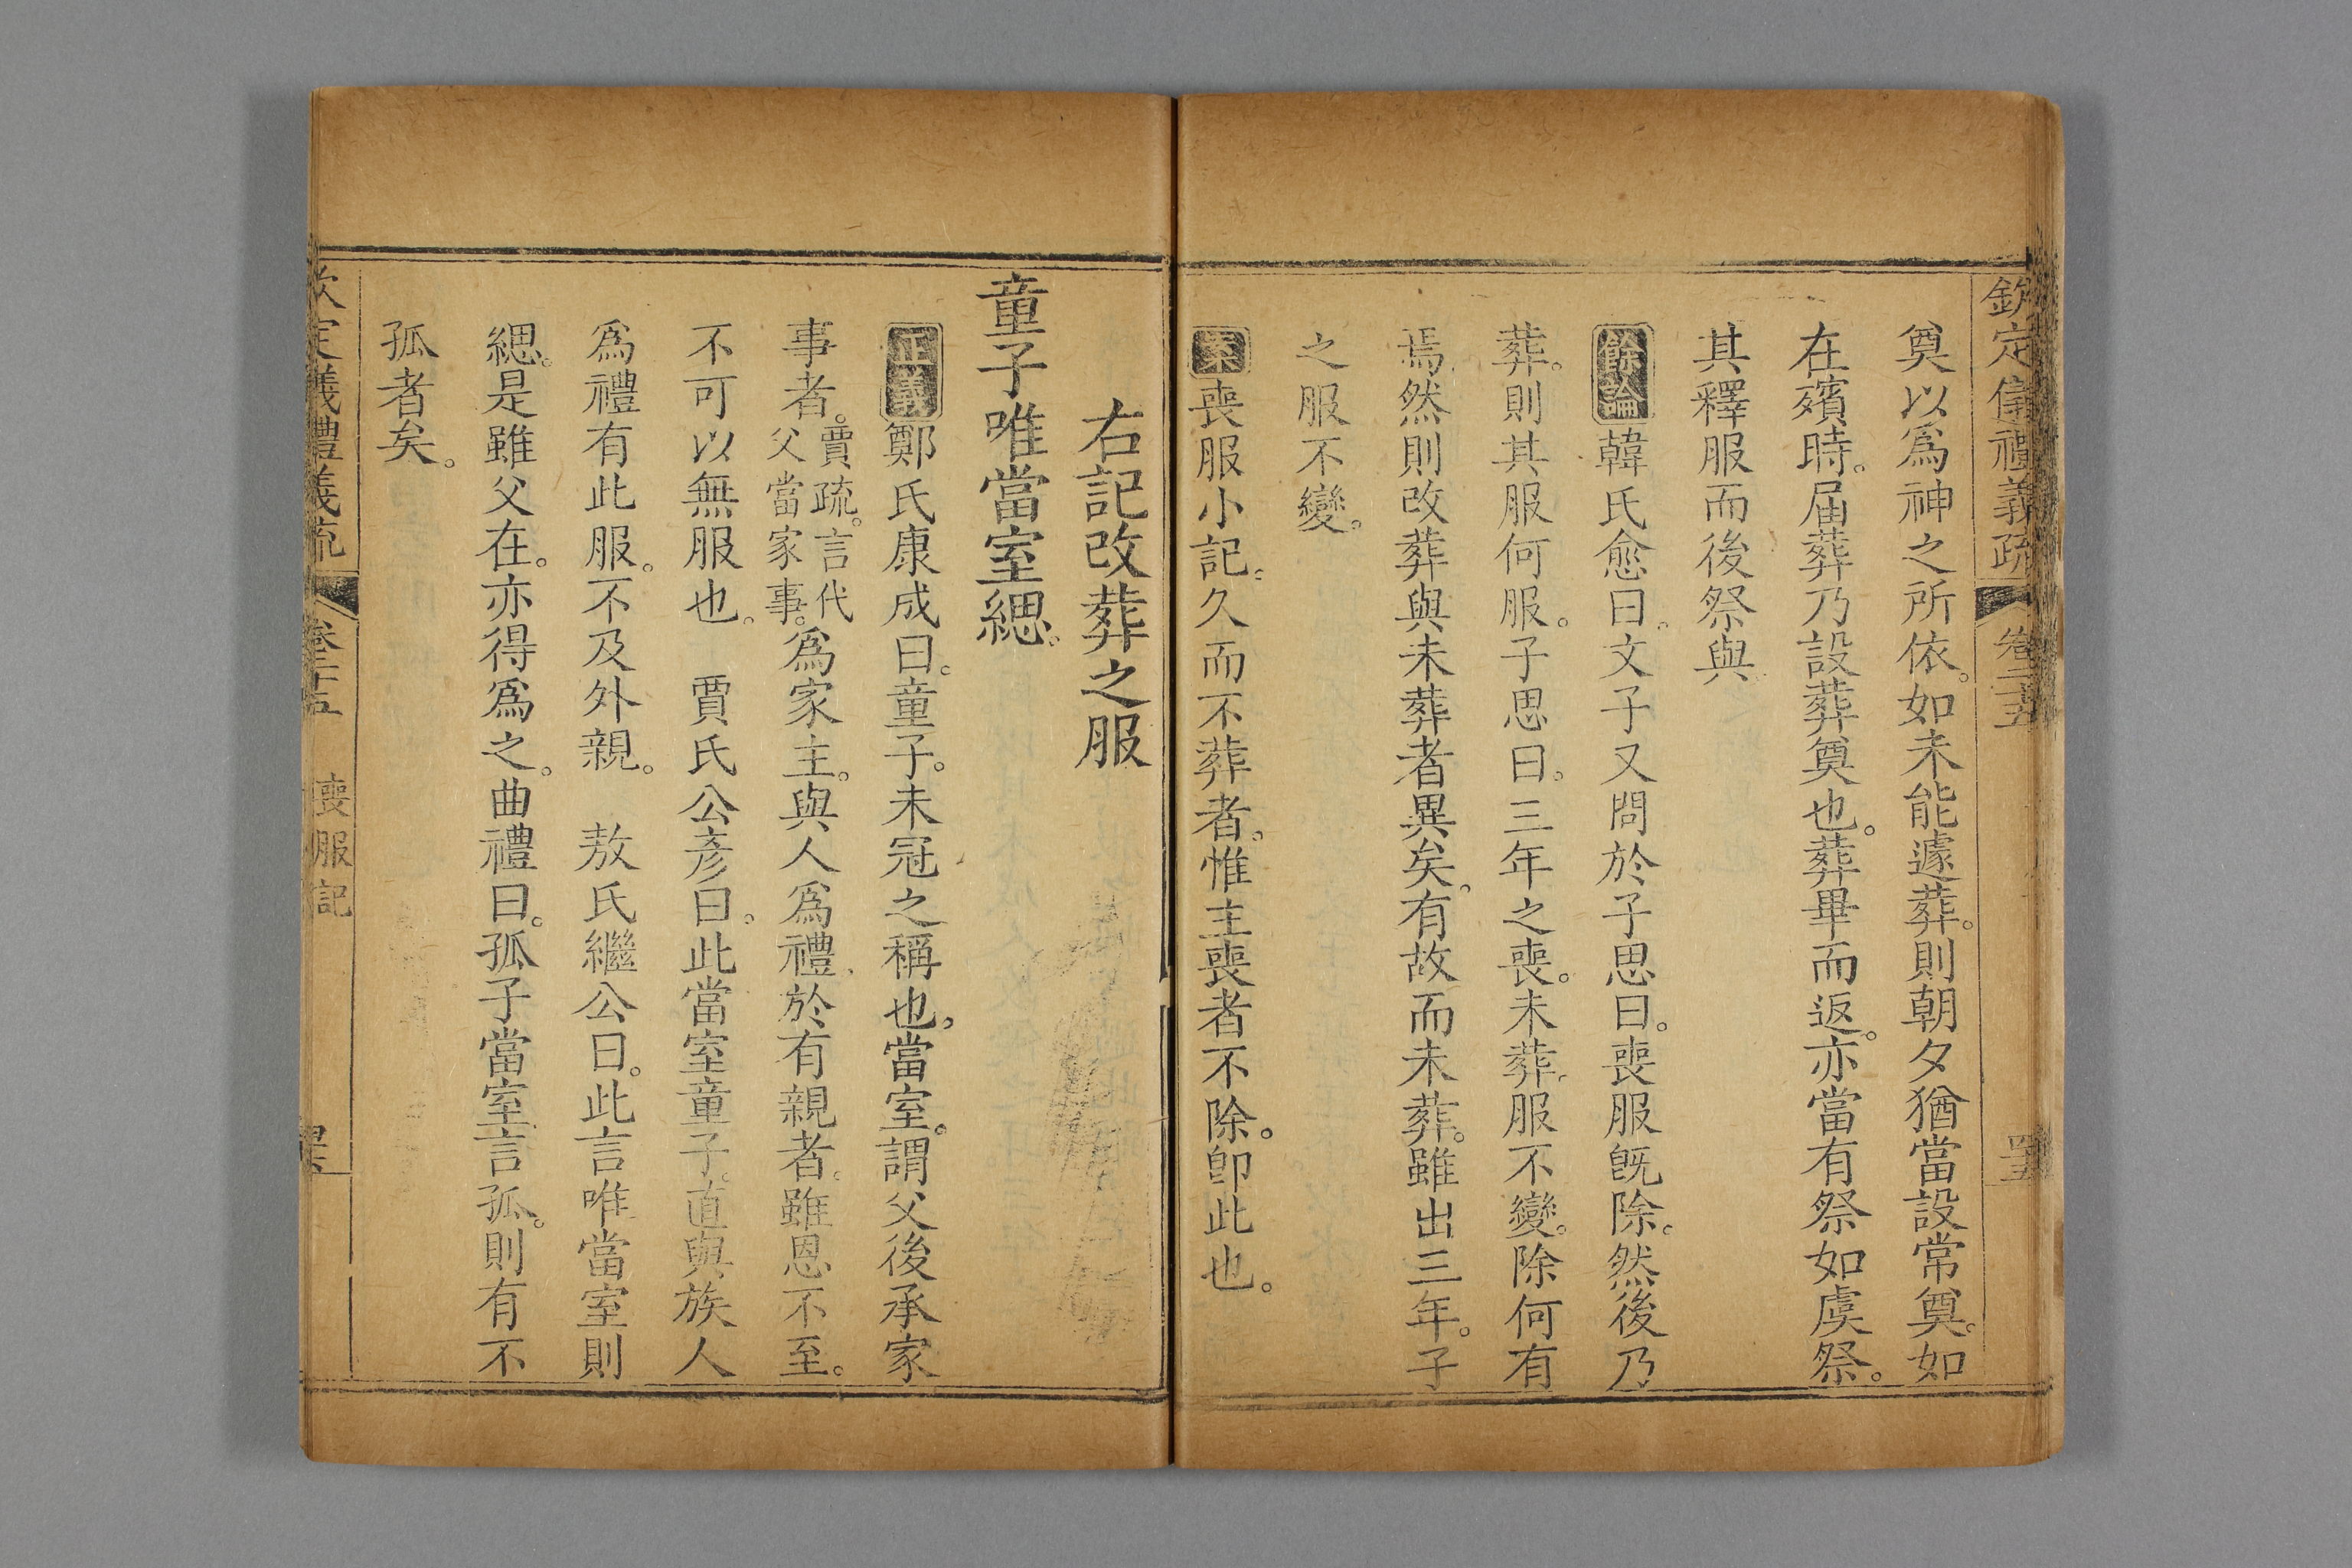 欽定儀禮義疏 卷二十五 四十五
奠以爲神之所依。如未能遽葬。則朝夕猶當設常奠。如
在殯時。届葬乃設葬奠也。葬畢而返。亦當有祭如虞祭。
其釋服而後祭與
餘論韓氏愈曰。文子又問於子思曰。喪服旣除。然後乃
葬。則其服何服。子思曰。三年之喪。未葬。服不變。除何有
焉。然則改葬與未葬者異矣。有故而未葬。雖出三年。子
之服不變。
案喪服小記。久而不葬者。惟主喪者不除。卽此也。
右記改葬之服
童子唯當室緦。
正義鄭氏康成曰。童子。未冠之稱也。當室。謂父後承家
事者。賈疏。言代父當家事。爲家主。與人爲禮。於有親者。雖恩不至。
不可以無服也。 賈氏公彥曰。此當室童子。直與族人
爲禮有此服。不及外親。 敖氏繼公曰。此言唯當室則
緦。是雖父在。亦得爲之。曲禮曰。孤子當室。言孤。則有不
孤者矣。
欽定儀禮義疏 卷二十五 喪服記